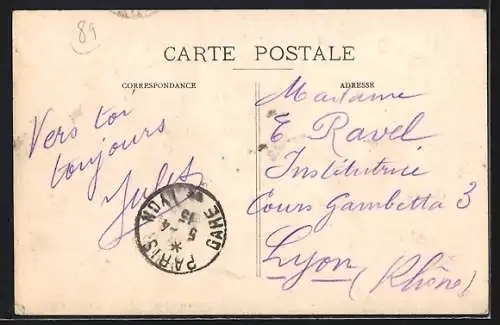 89
CARTE POSTALE
CORRESPONDANCE
ADRESSE
Vers toi
toujours
Jules
Madame
E Ravel
Institutrice
Cours Gambetta 3
Lyon
(Rhône)
PARIS * GARE DE LYON
5 - 4
15